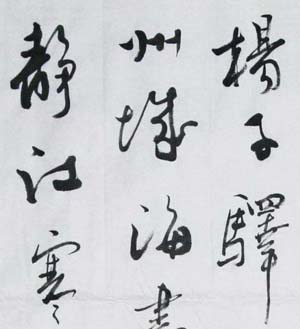 楊子驛
州城海盡
靜江寒